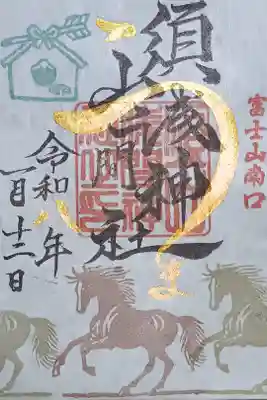 富士山南口
須山浅間神社
令和 年
一月十二日